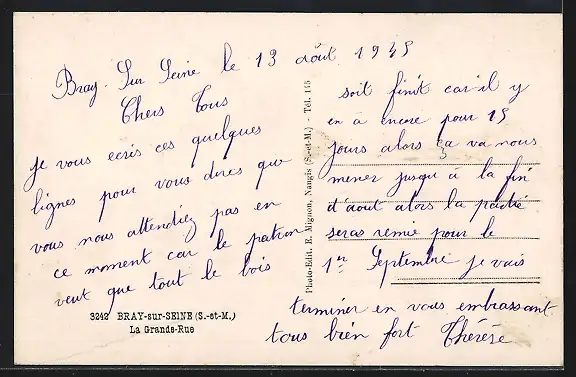 Bray-Sur Seine le 13 août 1945
Chers Tous
je vous ecris ces quelques
lignes pour vous dires que
vous nous attendiez pas en
ce moment car le patron
veut que tout le bois
3242 BRAY-sur-SEINE (S.-et-M.)
La Grande-Rue
Photo-Edit. E. Mignon, Nangis (S.-et-M.) - Tél. 145
soit finit car il y
en a encore pour 15
jours alors ça va nous
mener jusqu'a la fin
d'aout alors la partie
seras remie pour le
1er Septembre je vais
terminer en vous embrassant
tous bien fort Thérèse